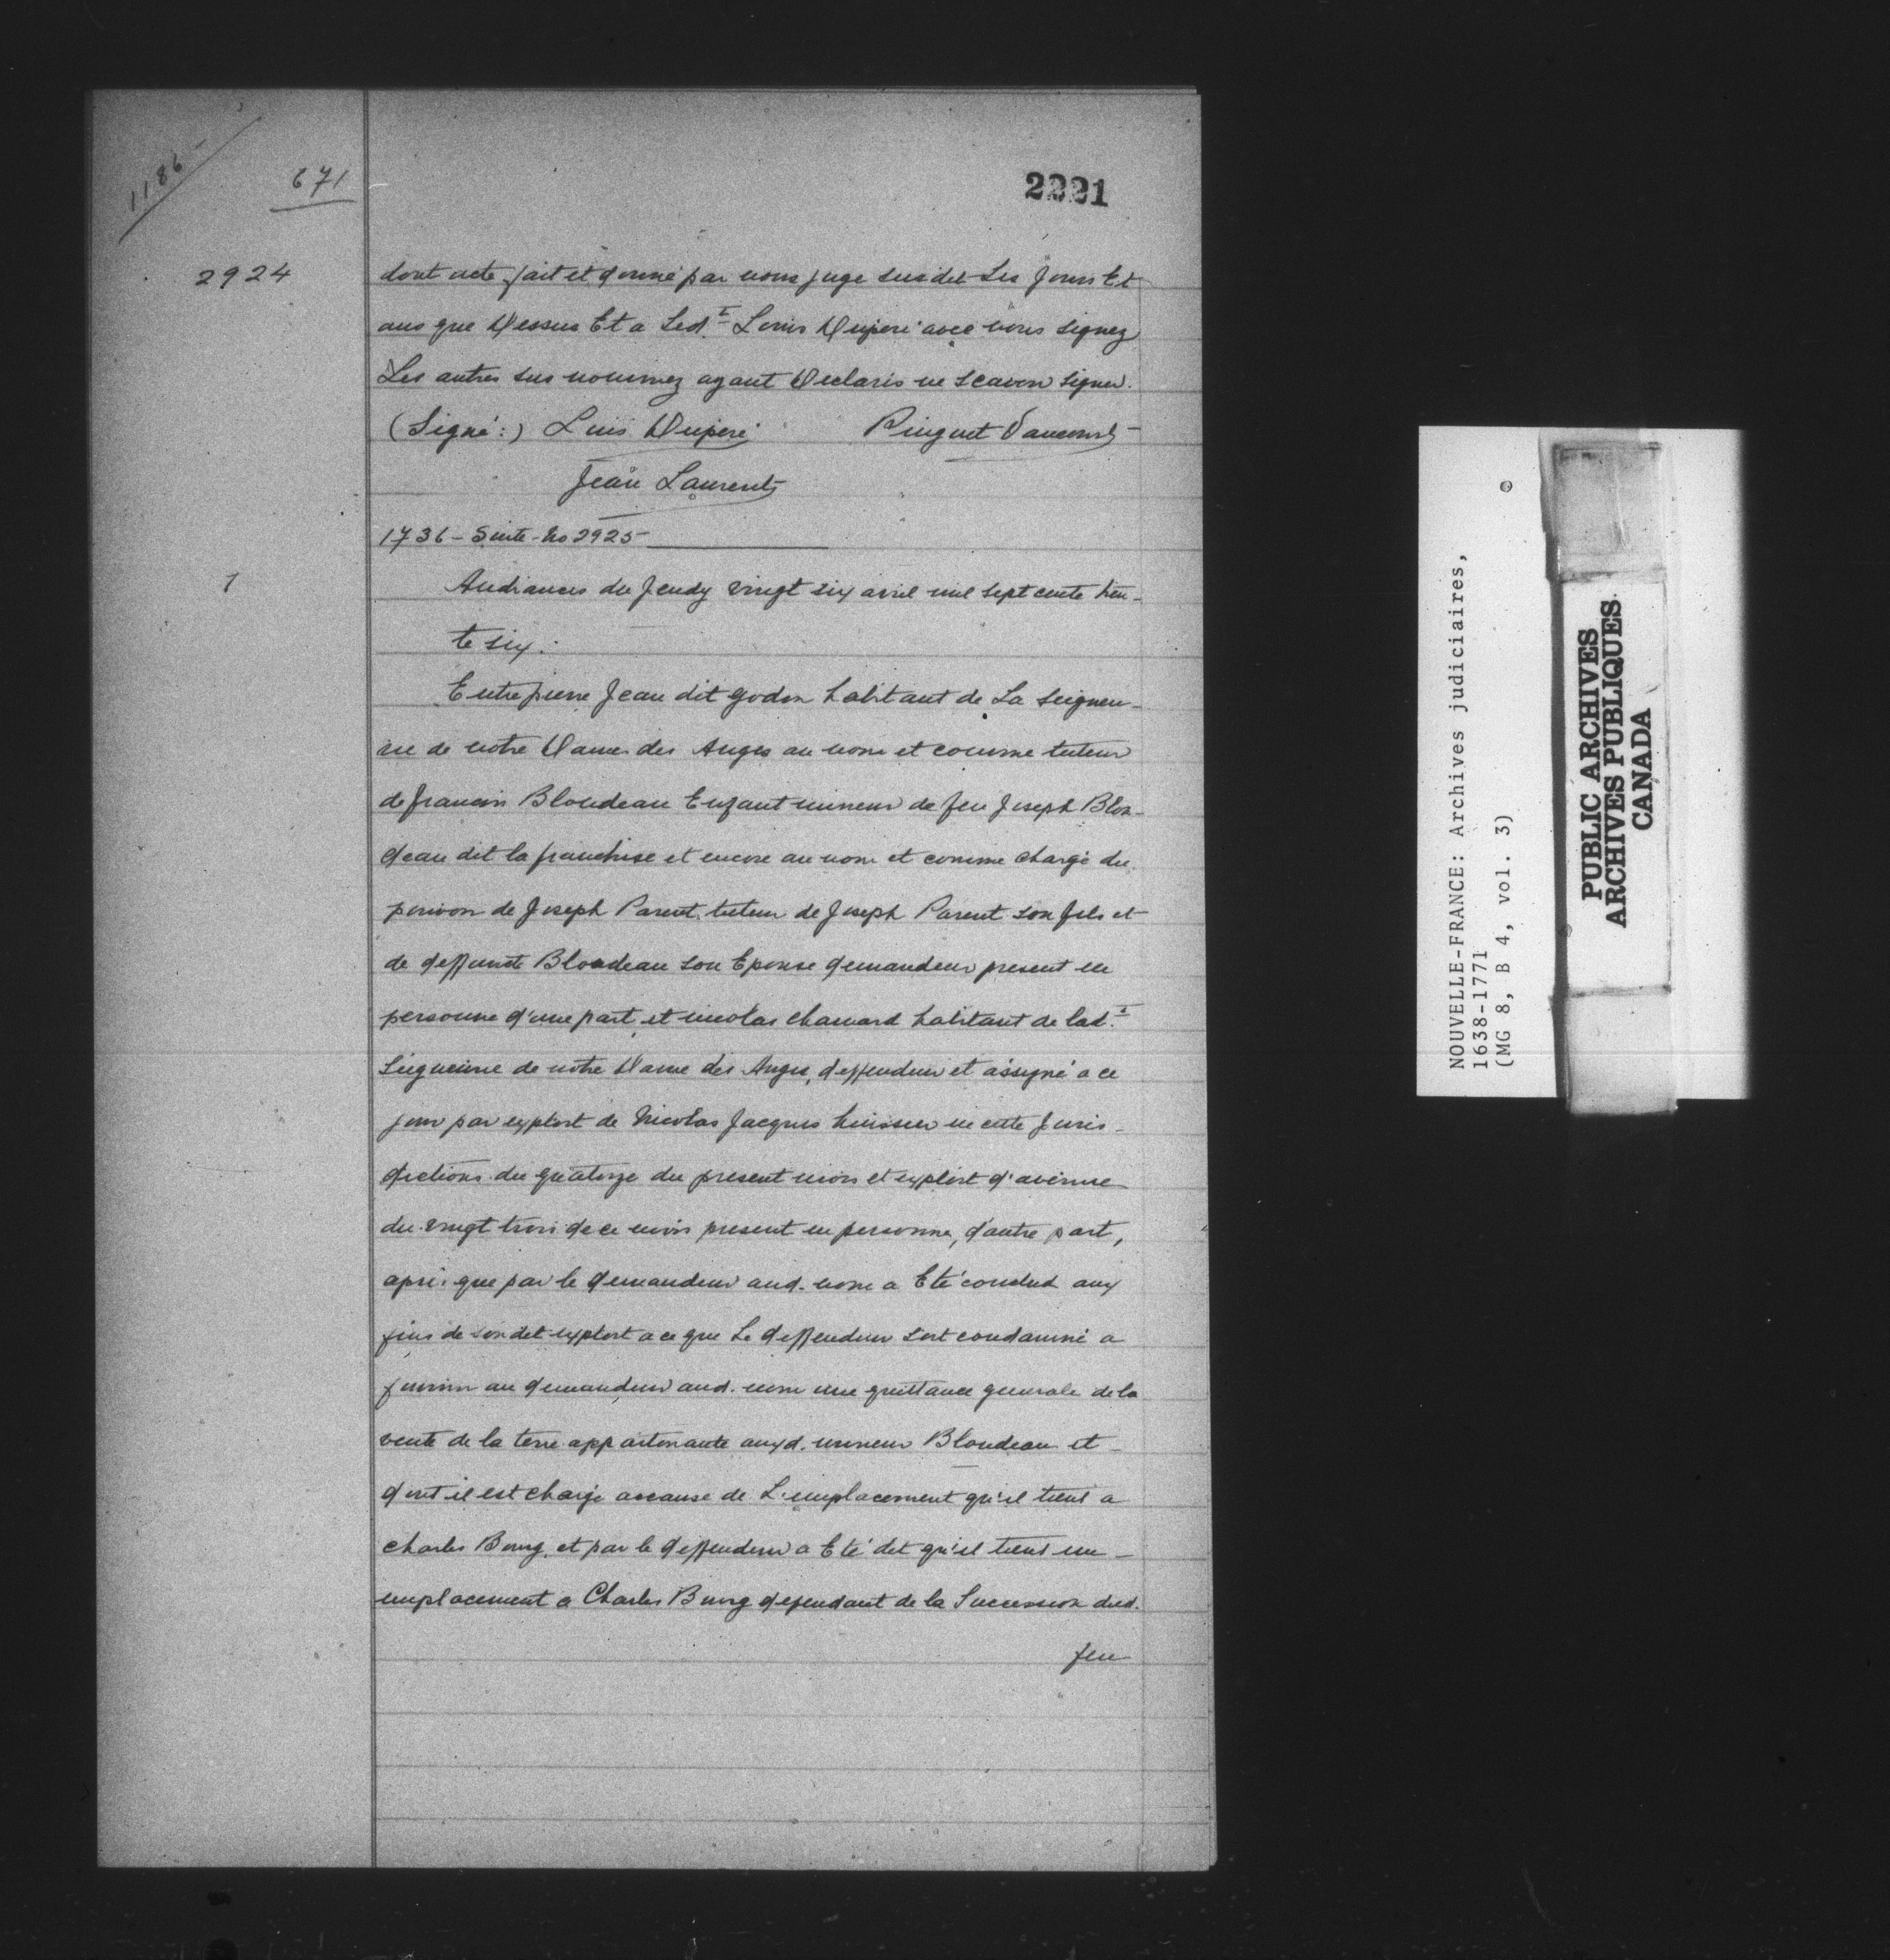 1186-
671
2221
2924
dont acte, fait et donné par nous juge susdit Les jours Et
ans que Dessus Et a Led.t Louis Duperé avec nous signez
Les autres sus nommez ayant Declarés ne scavoir signer.
(Signé:) Luis Duperé Pinguet Vaucourt
Jean Laurents
1736 - Suite - No 2925
1
Audiances du Jeudy vingt six avril mil sept cents tren-
te six.
Entre pierre Jean dit godon habitant de La seigneu-
rie de notre Dames des Anges au nom et comme tuteur
de francois Blondeau Enfant mineur de feu Joseph Blon-
deau dit la franchise et encore au nom et comme chargé du
pouvoir de Joseph Parent, tuteur de Joseph Parent son fils et
de deffunte Blondeau son Epouse demandeur present en
personne d'une part, et nicolas chamard habitant de lad.t
Seigneurie de notre Dame des Anges, deffendeur et assigné a ce
jour par exploit de Nicolas Jacques huissier en cette Juris-
dictions du quatorze du present mois et exploit d'avenir
du vingt trois de ce mois present en personne, d'autre part,
après que par le demandeur aud. nom a Eté conclud aux
fins de son dit exploit a ce que Le deffendeur soit condamné a
fournir au demandeur aud. nom une quittance generale de la
vente de la terre appartenante auxd. mineur Blondeau et
dont il est chargé acause de L'emplacement qu'il tient a
charles Bourg, et par le deffendeur a Eté dit qu'il tient un
emplacement a Charles Bourg dependant de la Succession dud.
feu
NOUVELLE-FRANCE: Archives judiciaires,
1638-1771
(MG 8, B 4, vol. 3)
PUBLIC ARCHIVES
ARCHIVES PUBLIQUES
CANADA